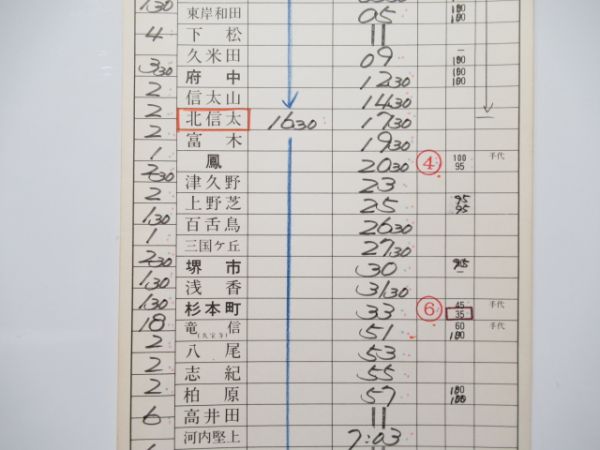 1.30 東岸和田 05 100 100
4 下松 ||
久米田 09 — 100
3 30 府中 12 30 100 100
2 信太山 14 30
2 北信太 16 30 17 30 —
2 富木 19 30
1 鳳 20 30 ④ 100 95 手代
2 30 津久野 23
2 上野芝 25 95 95
1 30 百舌鳥 26 30
1 三国ケ丘 27 30
2 30 堺市 30 —
1 30 浅香 31 30
1 30 杉本町 33 ⑥ 45 35 手代
18 竜信 (久宝寺) 51 60 100 手代
2 八尾 53
2 志紀 55
2 柏原 57 100 100
6 高井田 ||
河内堅上 7:03